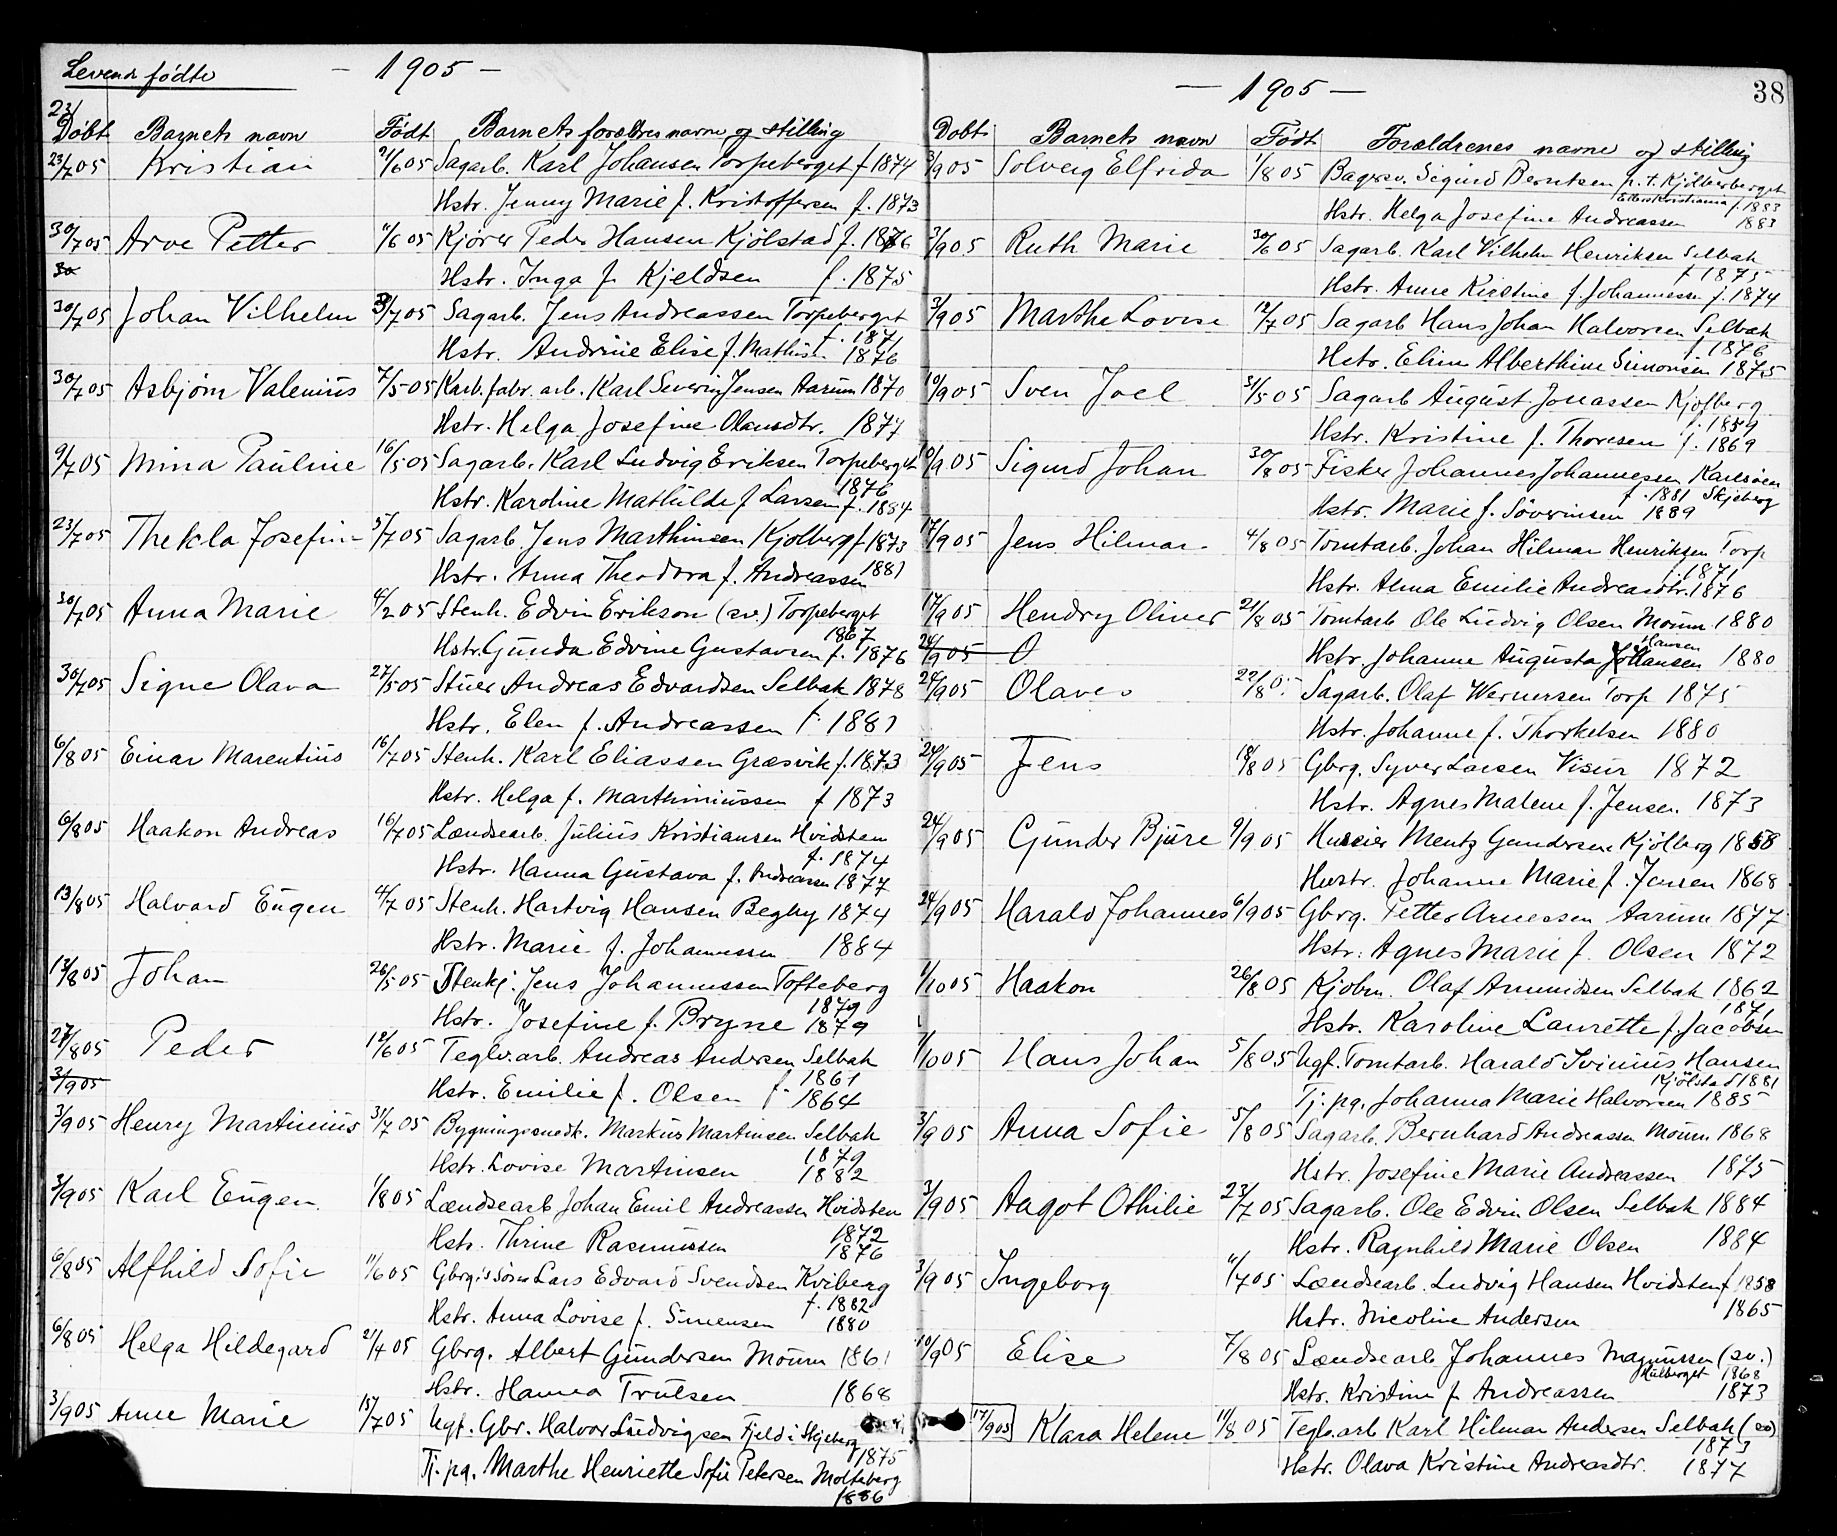 Levende fødte - 1905 -
23/
Døbt Barnets navn Født Barnets forældres navne og stilling
23/7 05 Kristian 21/6 05 Sagarb. Karl Johansen Torpeberget f 1874
Hstr. Jenny Marie f. Kristoffersen f. 1873
30/7 05 Arve Petter 11/6 05 Kjører Peder Hansen Kjølstad f. 1876
30
Hstr. Inga f. Kjeldsen f. 1875
30/7 05 Johan Vilhelm 3/7 05 Sagarb. Jens Andreassen Torpeberget
f. 1871
Hstr. Andrine Elise f. Mathisen 1876
30/7 05 Asbjørn Valenius 7/5 05 Karb. fabr. arb. Karl Severin Jensen Aarum 1870
Hstr. Helga Josefine Olausdtr. 1877
9/7 05 Mina Pauline 16/5 05 Sagarb. Karl Ludvig Eriksen Torpeberget
1876
Hstr. Karoline Mathilde f Larsen f. 1884
23/7 05 Thekla Josefine 5/7 05 Sagarb. Jens Marthinsen Kjølberg f 1873
Hstr. Anna Theodora f. Andreassen 1881
30/7 05 Anna Marie 4/2 05 Stenh. Edvin Erikson (sv.) Torpeberget
1867
Hstr. Gunda Edvine Gustavsen f. 1876
30/7 05 Signe Olava 27/5 05 Stuer Andreas Edvardsen Selbak 1878
Hstr. Elen f. Andreassen f. 1881
6/8 05 Einar Marentius 16/7 05 Stenh. Karl Eliassen Græsvik f. 1873
Hstr. Helga f. Marthiniussen f 1873
6/8 05 Haakon Andreas 16/7 05 Lændsearb. Julius Kristiansen Hvidsten
f. 1874
Hstr. Hanna Gustava f. Andreassen 1877
13/8 05 Halvard Eugen 4/7 05 Stenh. Hartvig Hansen Begby 1874
Hstr. Marie f. Johannessen 1884
13/8 05 Johan 26/5 05 Stenhj. Jens Johannessen Tofteberg
1879
Hstr. Josefine f. Bryne 1879
27/8 05 Peder 12/6 05 Teglv.arb. Andreas Andersen Selbak
3/9 05
1861
Hstr. Emilie f. Olsen f. 1864
3/9 05 Henry Martinius 31/7 05 Bygningssnedk. Markus Martinsen Selbak
1879
Hstr. Lovise Martinsen 1882
3/9 05 Karl Eugen 1/8 05 Lændsearb Johan Emil Andreassen Hvidsten
1872
Hstr. Thrine Rasmussen 1876
6/8 05 Alfhild Sofie 11/6 05 Gbrg.s søn Lars Edvard Svendsen Kviberg
f. 1882
Hstr. Anna Lovise f. Simensen 1880
6/8 05 Helga Hildegard 21/4 05 Gbrg. Albert Gundersen Moum 1861
Hstr. Hanna Trulsen 1868
3/9 05 Anne Marie 15/7 05 Ugf. Gbr. Halvor Ludvigsen Fjeld i Skjeberg
1875
Tj. pg. Marthe Henriette Sofie Petersen Molteberg
1886
- 1905 - 38
Døbt Barnets navn Født Forældrenes navne og stilling
3/9 05 Solveig Elfrida 1/8 05 Bagersv. Sigurd Berntsen p.t. Kjølberberget
Ellers Kristiania f. 1883
Hstr. Helga Josefine Andreassen 1883
3/9 05 Ruth Marie 30/6 05 Sagarb. Karl Vilhelm Henriksen Selbak
f 1875
Hstr. Anne Kirstine f. Johannessen f. 1874
3/9 05 Marthe Lovise 12/7 05 Sagarb Hans Johan Halvorsen Selbak
f 1876
Hstr. Eline Alberthine Simonsen 1875
10/9 05 Sven Joel 31/5 05 Sagarb August Jonassen Kjølberg
f. 1859
Hstr. Kristine f. Thoresen f. 1869
10/9 05 Sigurd Johan 30/8 05 Fisker Johannes Johannessen Karlsøen
f. 1881 Skjeberg
Hstr. Marie f. Søverinsen 1889
17/9 05 Jens Hilmar 4/8 05 Tomtarb. Johan Hilmar Henriksen Torp
1871
Hstr. Alma Emilie Andreasdtr. 1876
17/9 05 Hendry Oliver 21/8 05 Tomtarb Ole Ludvig Olsen Moum 1880
24/9 05 O
Hansen
Hstr. Johanne Augusta Johansen 1880
24/9 05 Olaves 22/8 05 Sagarb. Olaf Wernersen Torp 1875
Hstr. Johanne f. Thorkelsen 1880
24/9 05 Jens 18/8 05 Gbrg. Syver Larsen Visur 1872
Hstr. Agnes Malene f. Jensen. 1873
24/9 05 Gunder Bjare 9/9 05 Huseier Mentz Gundersen Kjølberg 1858
Hustr. Johanne Marie f. Jensen 1868
24/9 05 Harald Johannes 6/9 05 Gbrg. Petter Arnessen Aarum 1877
Hstr. Agnes Marie f. Olsen 1872
1/10 05 Haakon 26/8 05 Kjøbm. Olaf Amundsen Selbak 1862
1871
Hstr. Karoline Laurette f. Jacobsen
1/10 05 Hans Johan 5/8 05 Ugf. Tomtarb. Harald Ivinius Hansen
Kjølstad 1881
Tj. pg. Johanna Marie Halvorsen 1885
3/9 05 Anna Sofie 5/8 05 Sagarb. Bernhard Andreassen Moum 1868
Hstr. Josefine Marie Andreassen 1875
3/9 05 Aagot Othilie 23/7 05 Sagarb. Ole Edvin Olsen Selbak 1884
Hstr. Ragnhild Marie Olsen 1884
3/9 05 Ingeborg 11/7 05 Lændsearb. Ludvig Hansen Hvidsten f 1858
Hstr. Nicoline Andersen 1865
10/9 05 Elise 7/8 05 Lændsearb Johannes Magnussen (sv.)
Kjølberget 1868
Hstr. Kristine f. Andreassen 1873
17/9 05 Klara Helene 11/8 05 Teglv.arb Karl Hilmar Andersen Selbak (sv)
1873
Hstr. Olava Kristine Andreasdtr. 1877